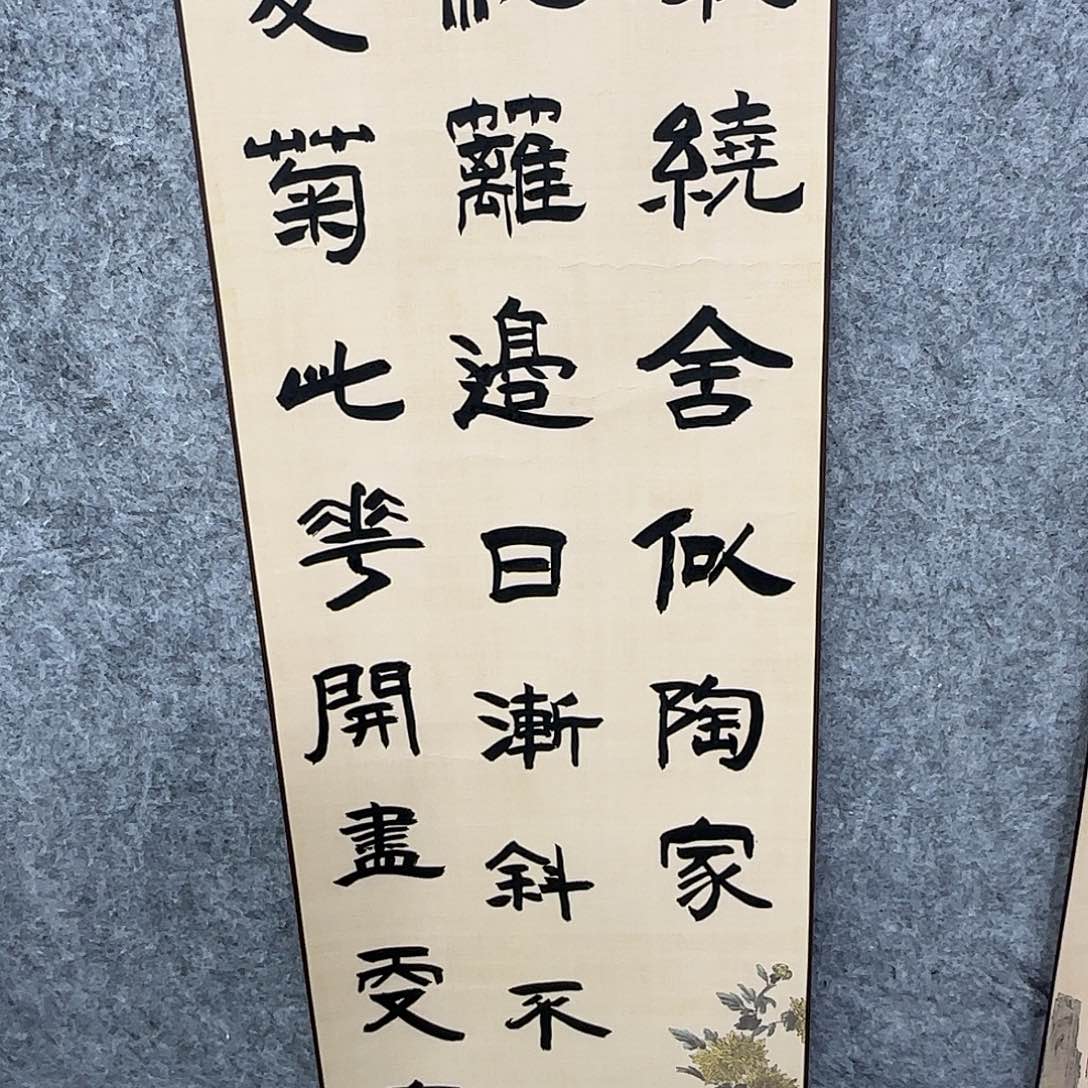 繞舍似陶家
籬邊日漸斜不
菊此華開盡更